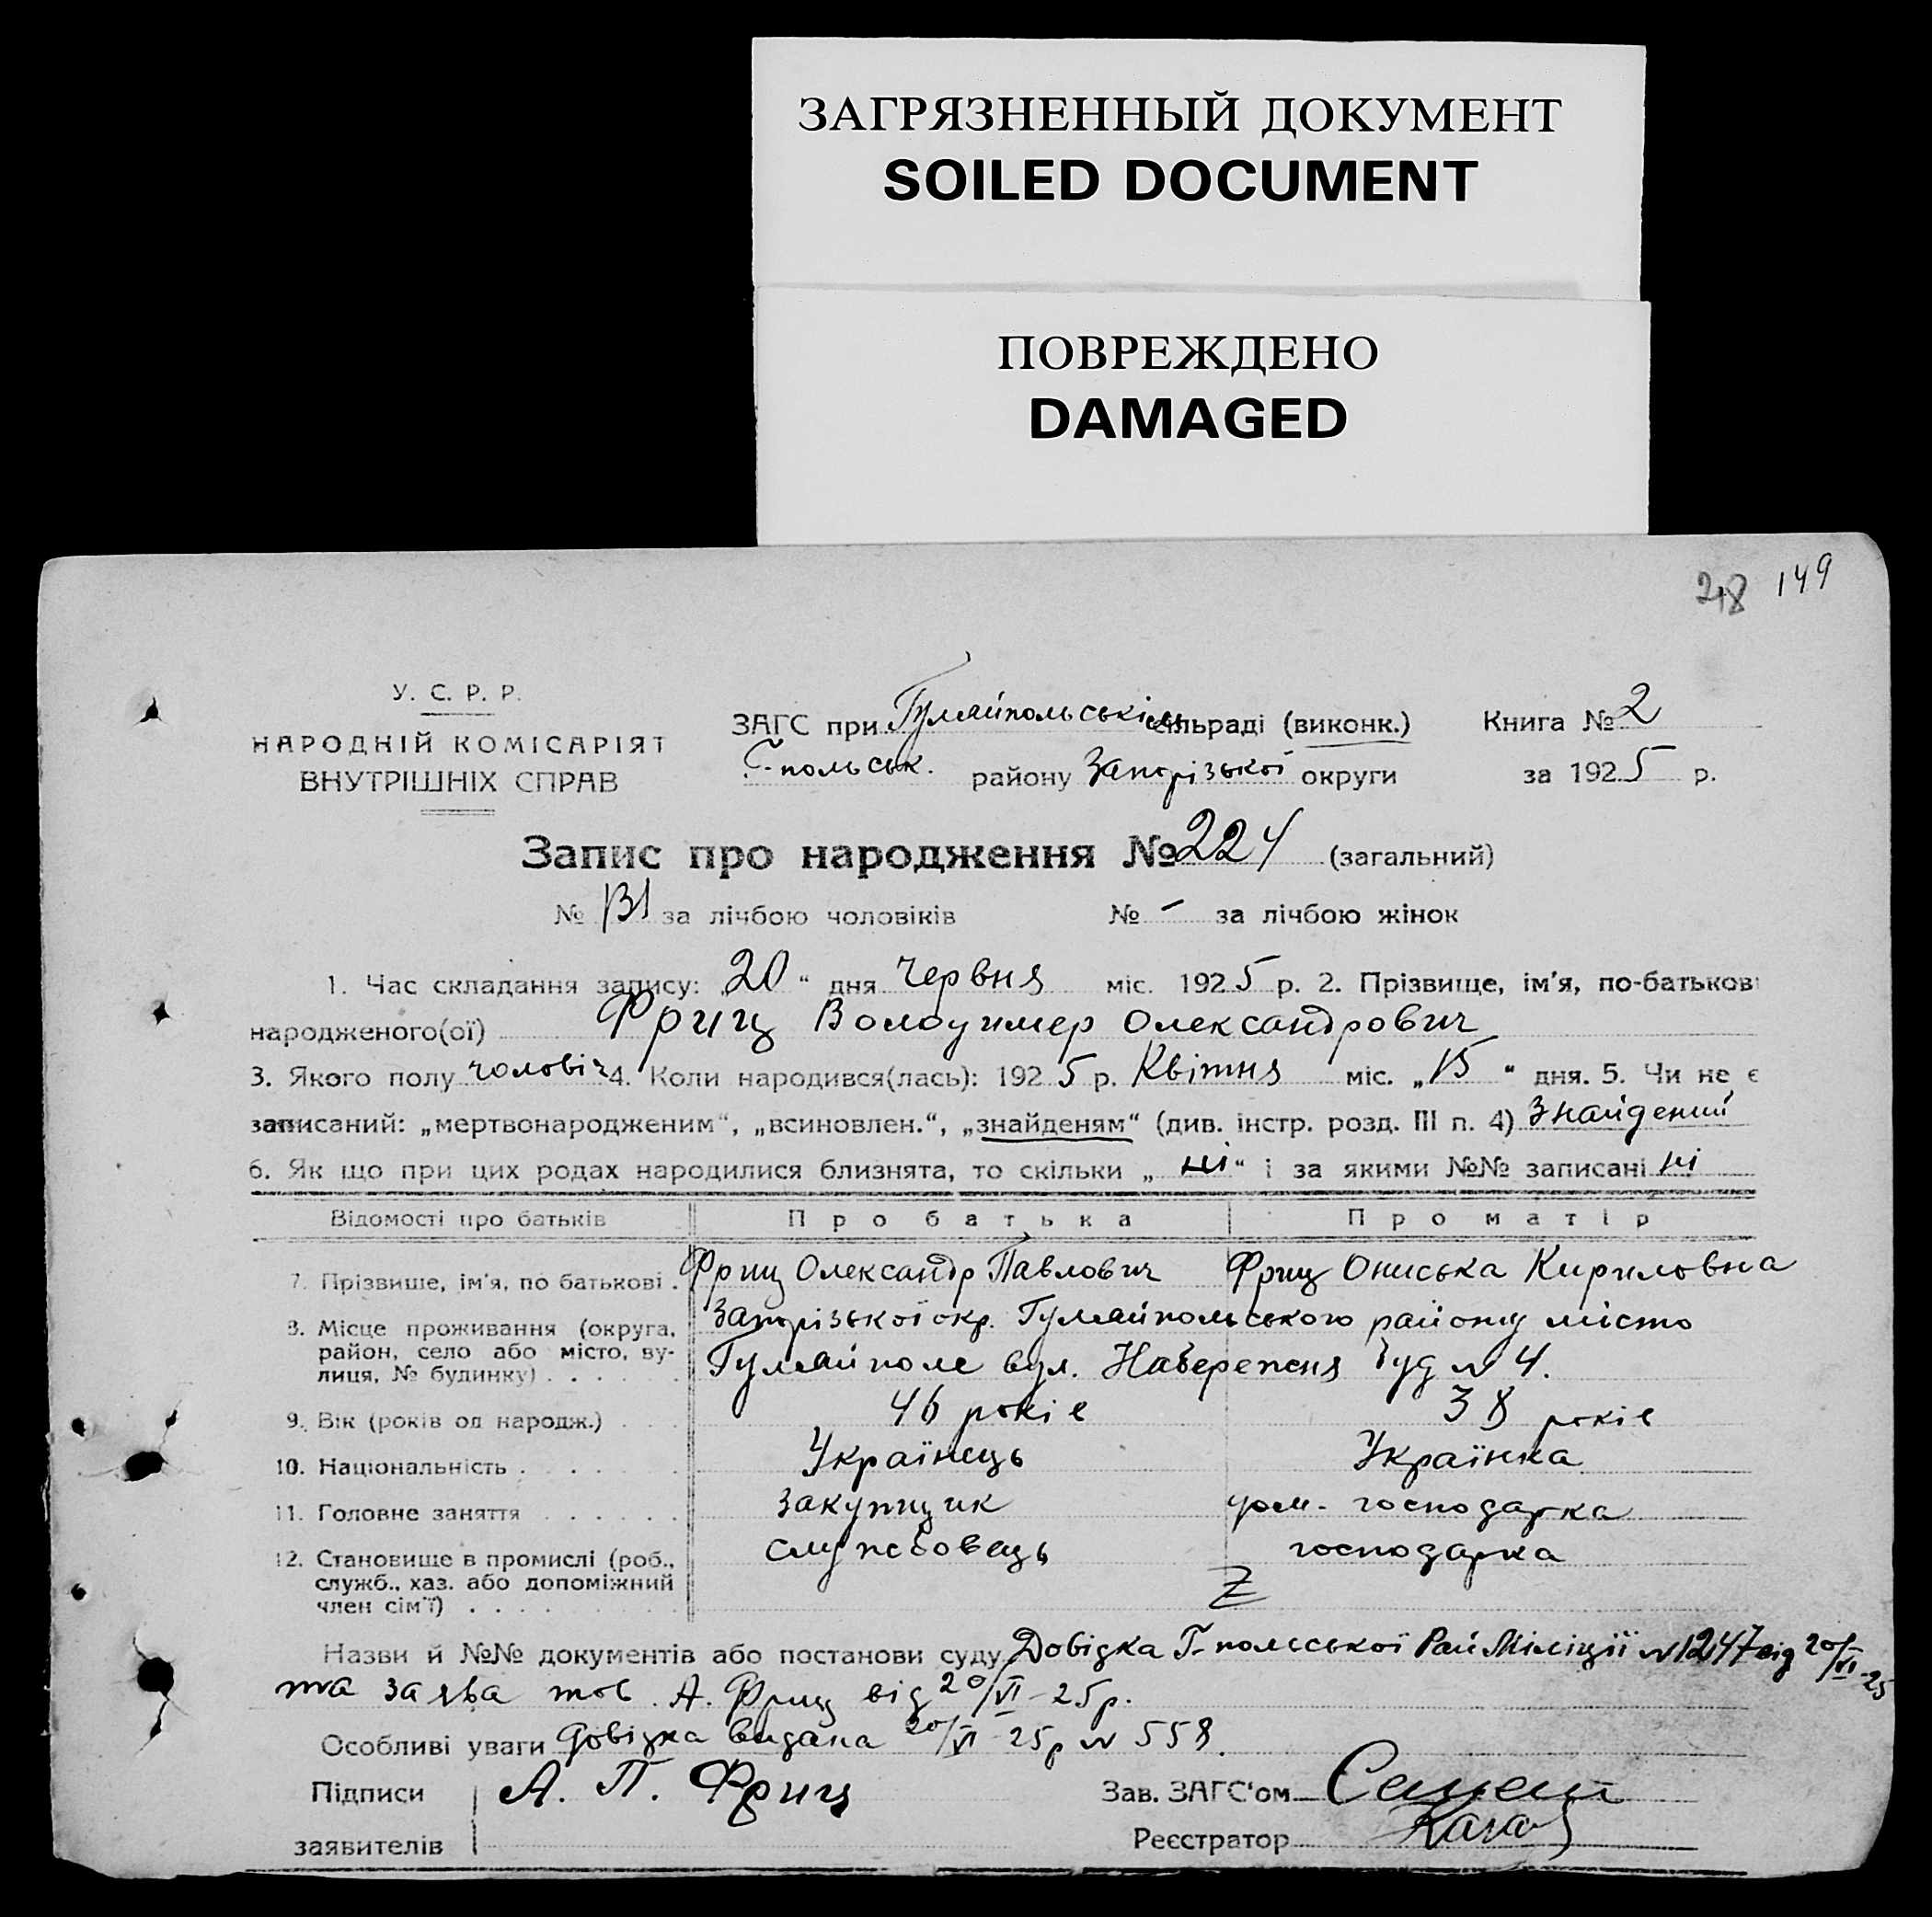 ЗАГРЯЗНЕННЫЙ ДОКУМЕНТ
SOILED DOCUMENT
ПОВРЕЖДЕНО
DAMAGED
28 149
У. С. Р. Р.
НАРОДНІЙ КОМІСАРІЯТ
ВНУТРІШНІХ СПРАВ
ЗАГС при Гуляйпольськім сільраді (виконк.) Книга № 2
Г-польськ. району Запорізької округи за 1925 р.
Запис про народження № 224 (загальний)
№ 131 за лічбою чоловіків № - за лічбою жінок
1. Час складання запису: „20“ дня Червня міс. 1925 р. 2. Прізвище, ім'я, по-батькові
народженого(ої) Фриц Володимер Олександрович
3. Якого полу чоловіч 4. Коли народився(лась): 1925 р. Квітня міс. „15“ дня. 5. Чи не є
записаний: „мертвонародженим“, „всиновлен.“, „знайденям“ (див. інстр. розд. III п. 4) Знайдений
6. Як що при цих родах народилися близнята, то скільки „ні“ і за якими №№ записані ні
Відомості про батьків Про батька Про матір
7. Прізвише, ім'я, по батькові . Фриц Олександр Павлович Фриц Ониська Кириловна
8. Місце проживання (округа, район, село або місто, вулиця, № будинку) . . . . . . Запорізької окр. Гуляйпольського району місто
Гуляйполе вул. Набережня буд № 4.
9. Вік (років од народж.) . . . 46 років 38 років
10. Національність . . . . . . Українець Українка
11. Головне заняття . . . . . . закупщик дом- господарка
12. Становище в промислі (роб., служб., хаз. або допоміжний член сім'ї) . . . . службовець господарка
Z
Назви й №№ документів або постанови суду Довідка Г-польської Рай Міліції № 1247 від 20/VI-25
та заява тов. А. Фриц від 20/VI-25р.
Особливі уваги Довідка видана 20/VI 25р № 558.
Підписи А. П. Фриц Зав. ЗАГС'ом
заявителів Реєстратор